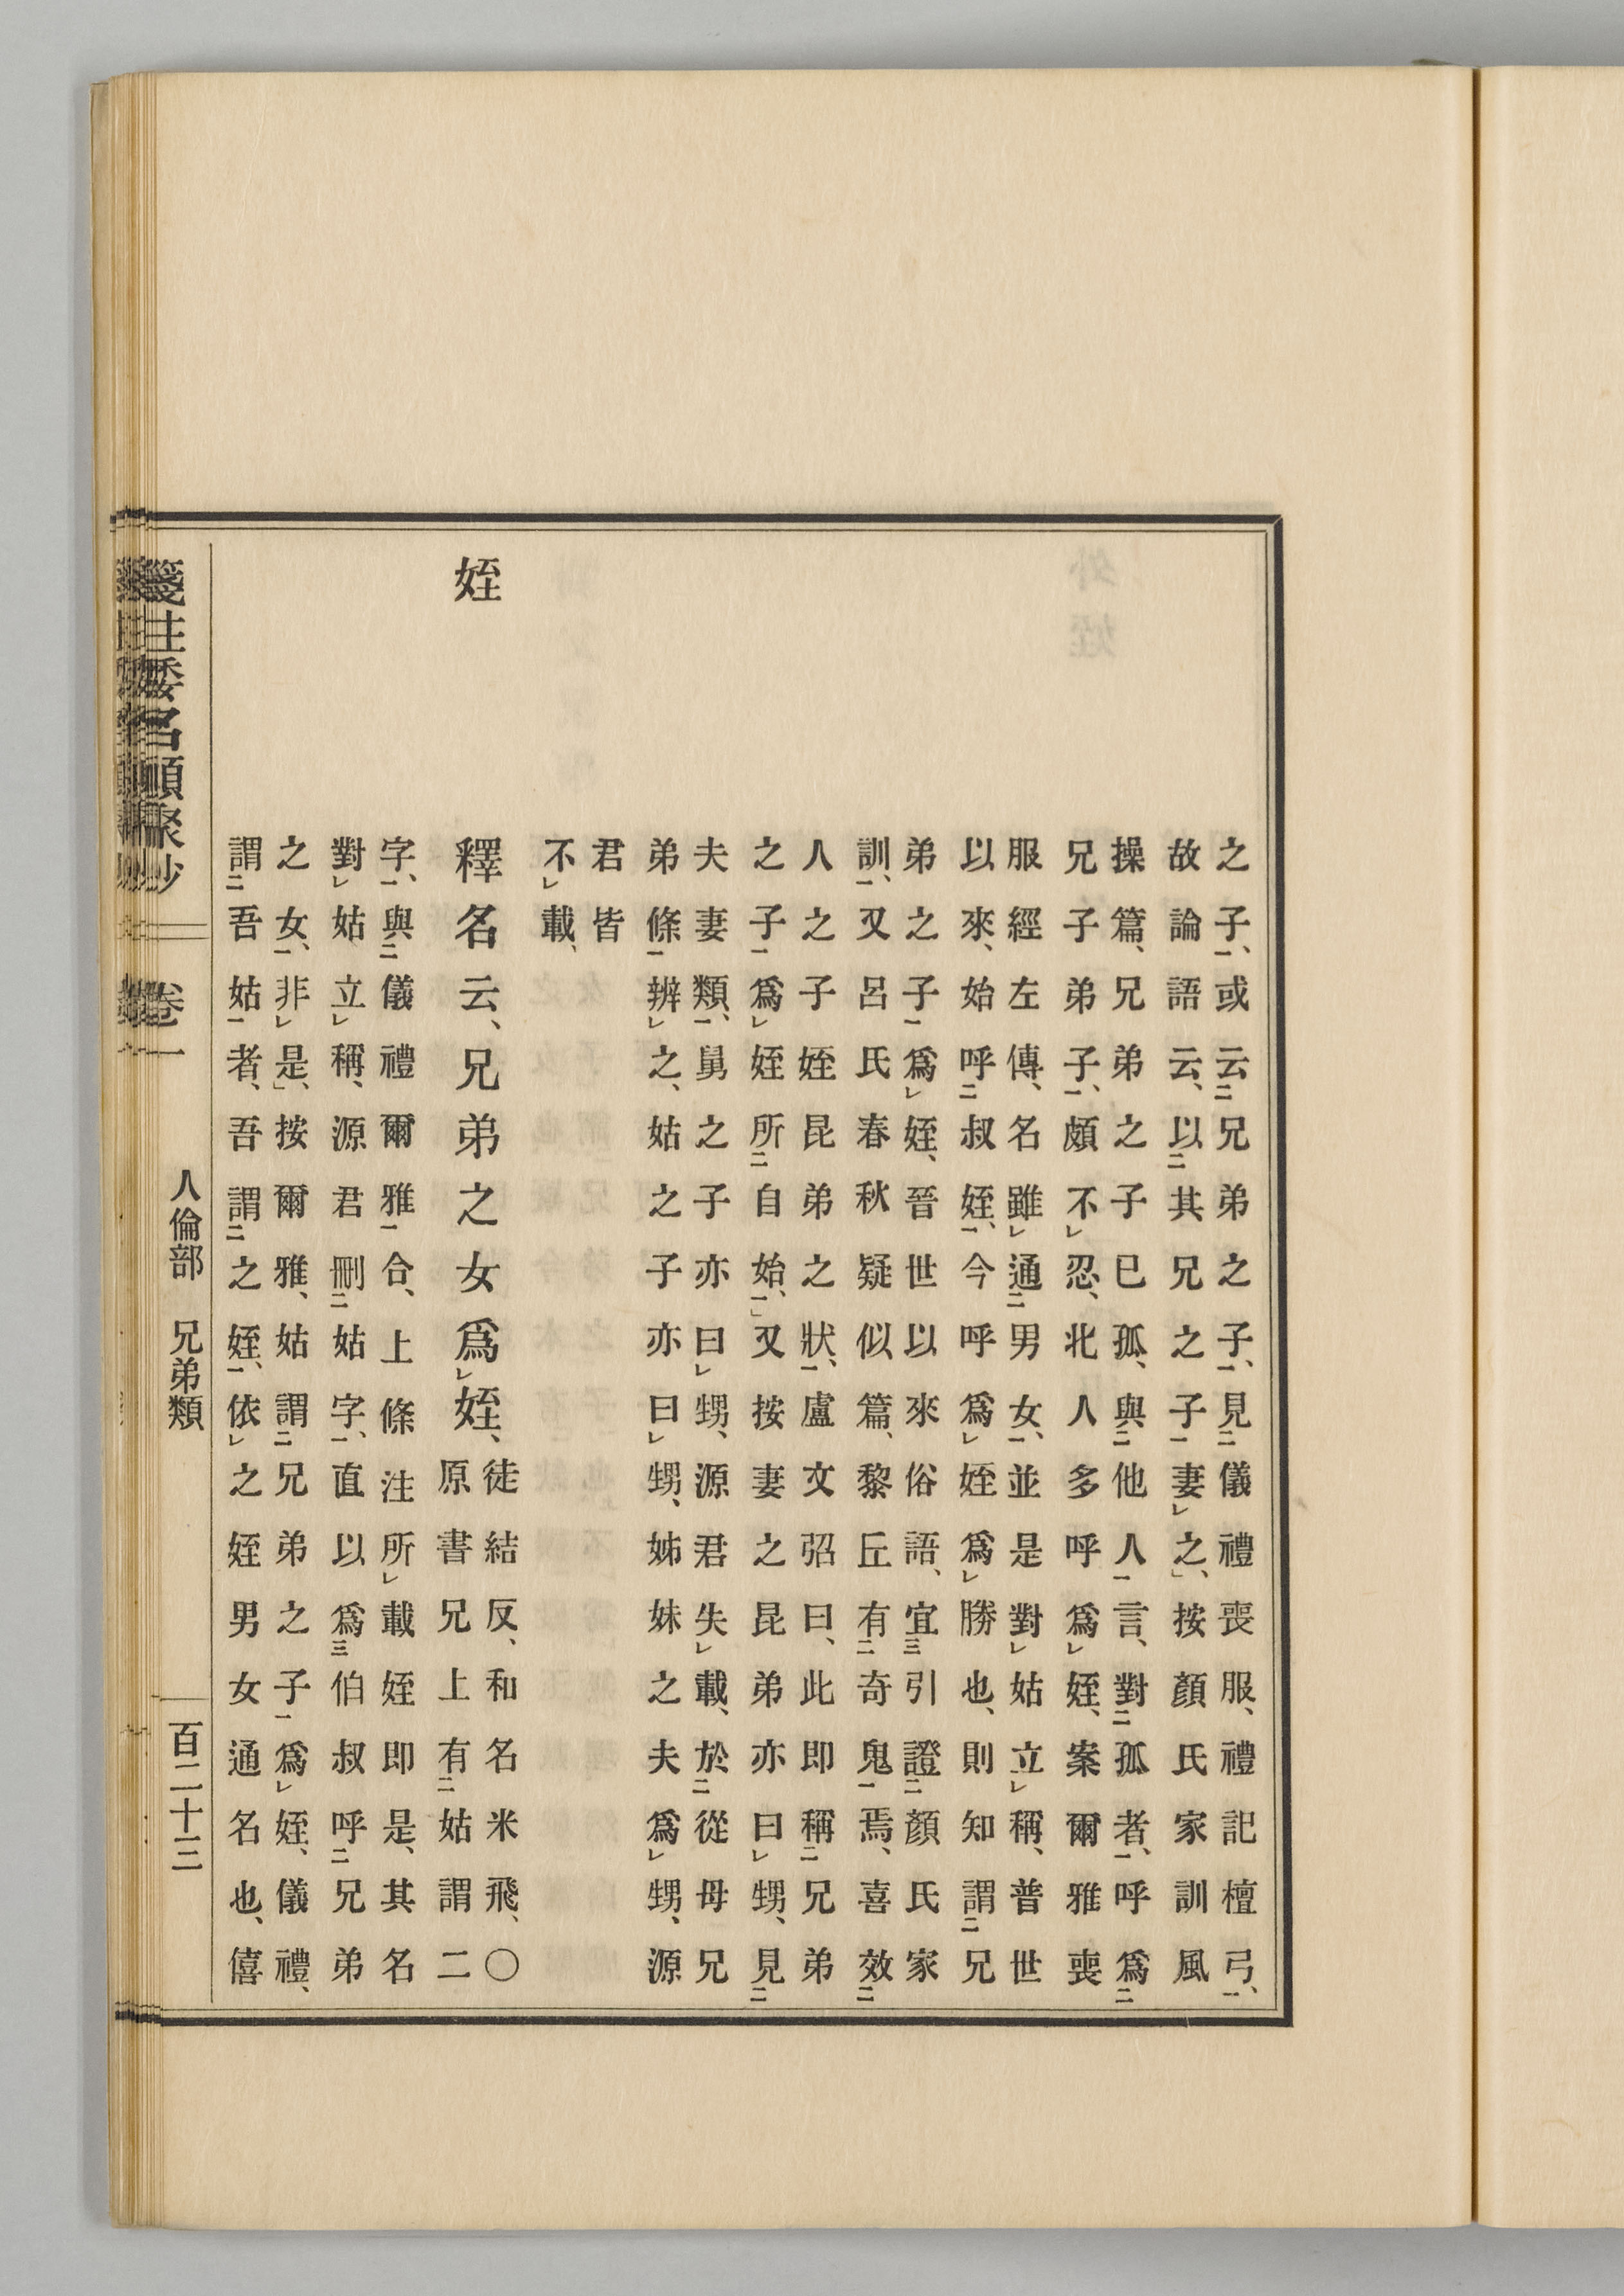 之子、或云兄弟之子、見儀禮喪服、禮記檀弓、
故論語云、以其兄之子妻之、」按顏氏家訓風
操篇、兄弟之子已孤、與他人言、對孤者、呼爲
兄子弟子、頗不忍、北人多呼爲姪、案爾雅喪
服經左傳、名雖通男女、並是對姑立稱、普世
以來、始呼叔姪、今呼爲姪爲勝也、則知謂兄
弟之子爲姪、晉世以來俗語、宜引證顏氏家
訓、又呂氏春秋疑似篇、黎丘有奇鬼焉、喜效
人之子姪昆弟之狀、盧文弨曰、此即稱兄弟
之子爲姪所自始、」又按妻之昆弟亦曰甥、見
夫妻類、舅之子亦曰甥、源君失載、於從母兄
弟條辨之、姑之子亦曰甥、姊妹之夫爲甥、源
君皆
不載、
姪
釋名云、兄弟之女爲姪、
徒結反、和名米飛、〇
原書兄上有姑謂二
字、與儀禮爾雅合、上條注所載姪即是、其名
對姑立稱、源君刪姑字、直以爲伯叔呼兄弟
之女、非是、」按爾雅、姑謂兄弟之子爲姪、儀禮、
謂吾姑者、吾謂之姪、依之姪男女通名也、僖
箋注倭名類聚抄 卷一 人倫部 兄弟類 百二十三